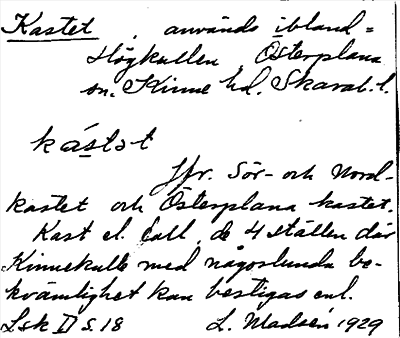 Kastet, används ibland =
Högkullen, Österplana
sn. Kinne hd. Skarab. l.
kástət
Jfr. Sör- och Nord-
kastet och Österplana kastet.
Kast el. kall. de 4 ställen där
Kinnekulle med någorlunda be-
kvämlighet kan bestigas enl.
Lsk II s. 18 L. Madsén 1929